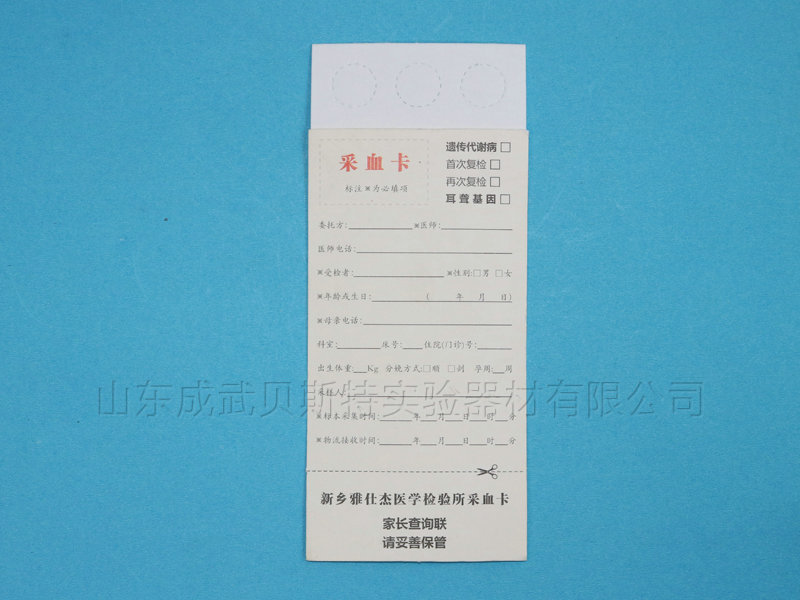 采血卡
标注※为必填项
遗传代谢病□
首次复检□
再次复检□
耳聋基因□
委托方:________ ※医师:________
医师电话:________
※受检者:________ ※性别:□男 □女
※年龄或生日:________( 年 月 日)
※母亲电话:________
科室:______床号:___住院(门诊)号:_____
出生体重:__Kg 分娩方式:□顺 □剖 孕周:__周
采样人:
※标本采集时间:____年__月__日__时__分
※物流接收时间:____年__月__日__时__分
山东成武贝斯特实验器材有限公司
新乡雅仕杰医学检验所采血卡
家长查询联
请妥善保管